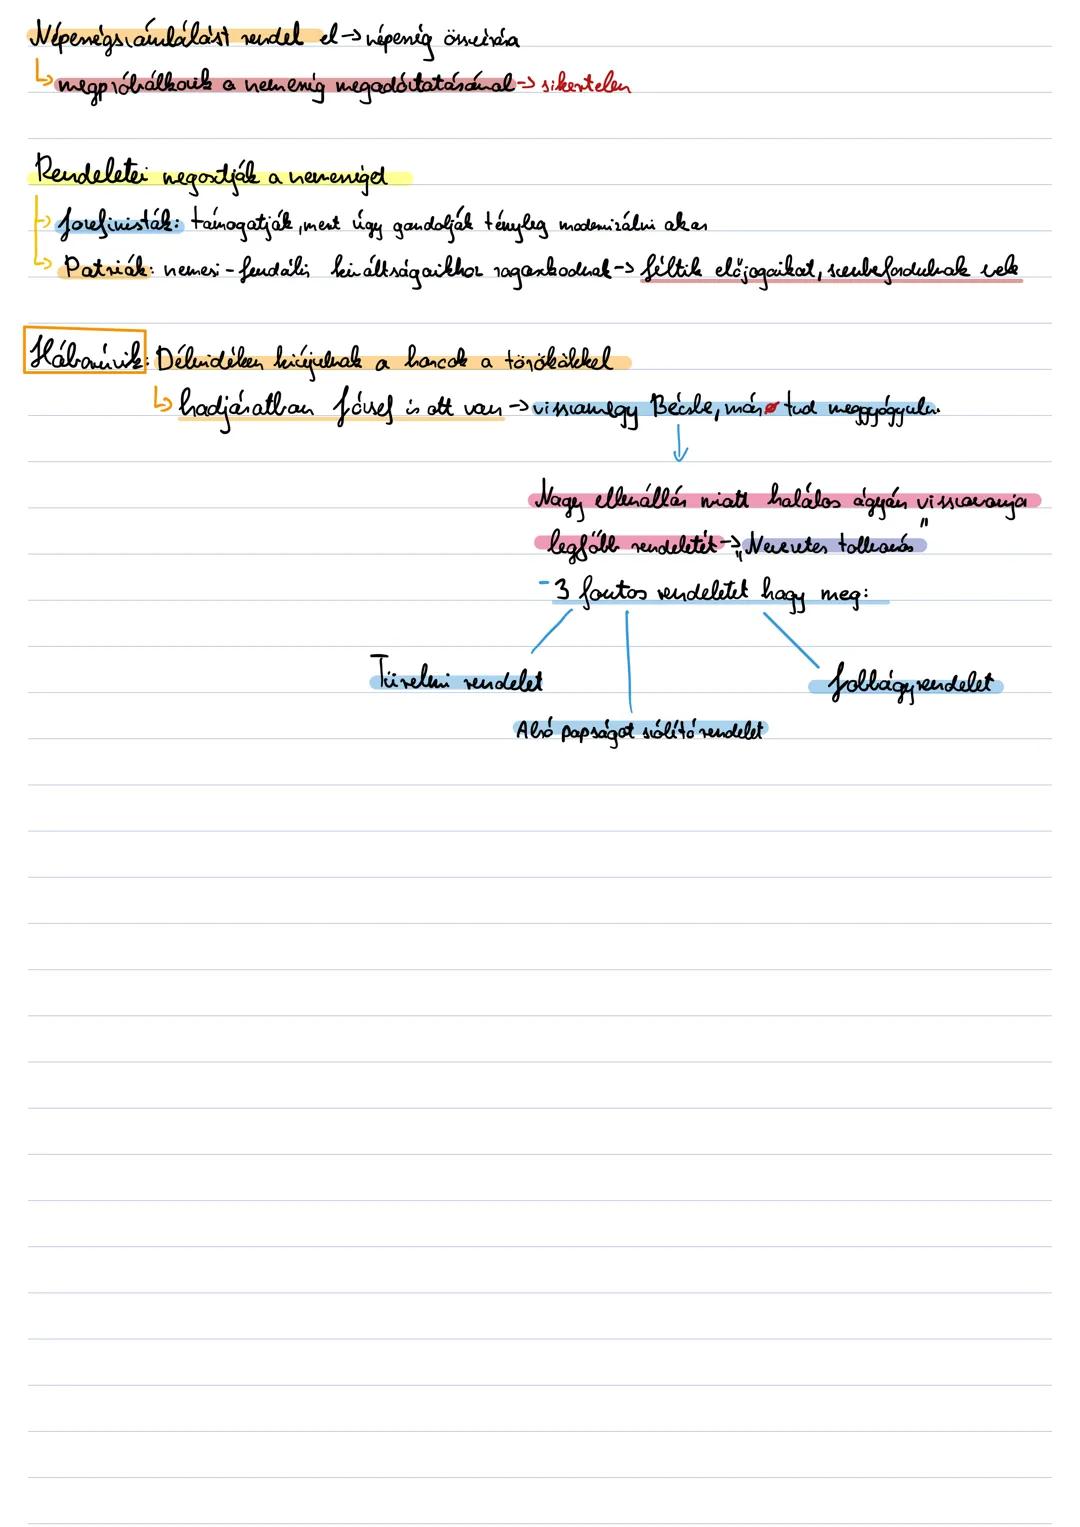 Népességszámlálást rendel el → népesség összeírása
↳ megpróbálkozik a nemesség megadóztatásával → sikertelen
Rendeletei megosztják a nemességet
→ Jozefinisták: támogatják, mert úgy gondolják tényleg modernizálni akar
↳ Patrióták: nemesi-feudális kiváltságaikhoz ragaszkodnak → féltik előjogaikat, szembefordulnak vele
Háborúik: Délvidéken kiéleződnek a harcok a törökökkel
↳ hadjáratban József is ott van → visszamegy Bécsbe, már ∅ tud meggyógyulni
↓
Nagy ellenállás miatt halálos ágyán visszavonja
legfőbb rendeletét → „Nevezetes tollvonás"
- 3 fontos rendeletet hagy meg:
Türelmi rendelet
Jobbágyrendelet
Alsó papságot segítő rendelet